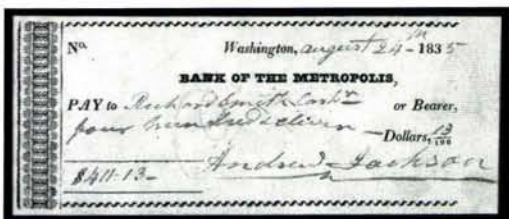 No. Washington, august 24th 1835
BANK OF THE METROPOLIS,
PAY to Richard Smith Cashr or Bearer,
four hundred eleven — Dollars, 13/100
$411.13- Andrew Jackson